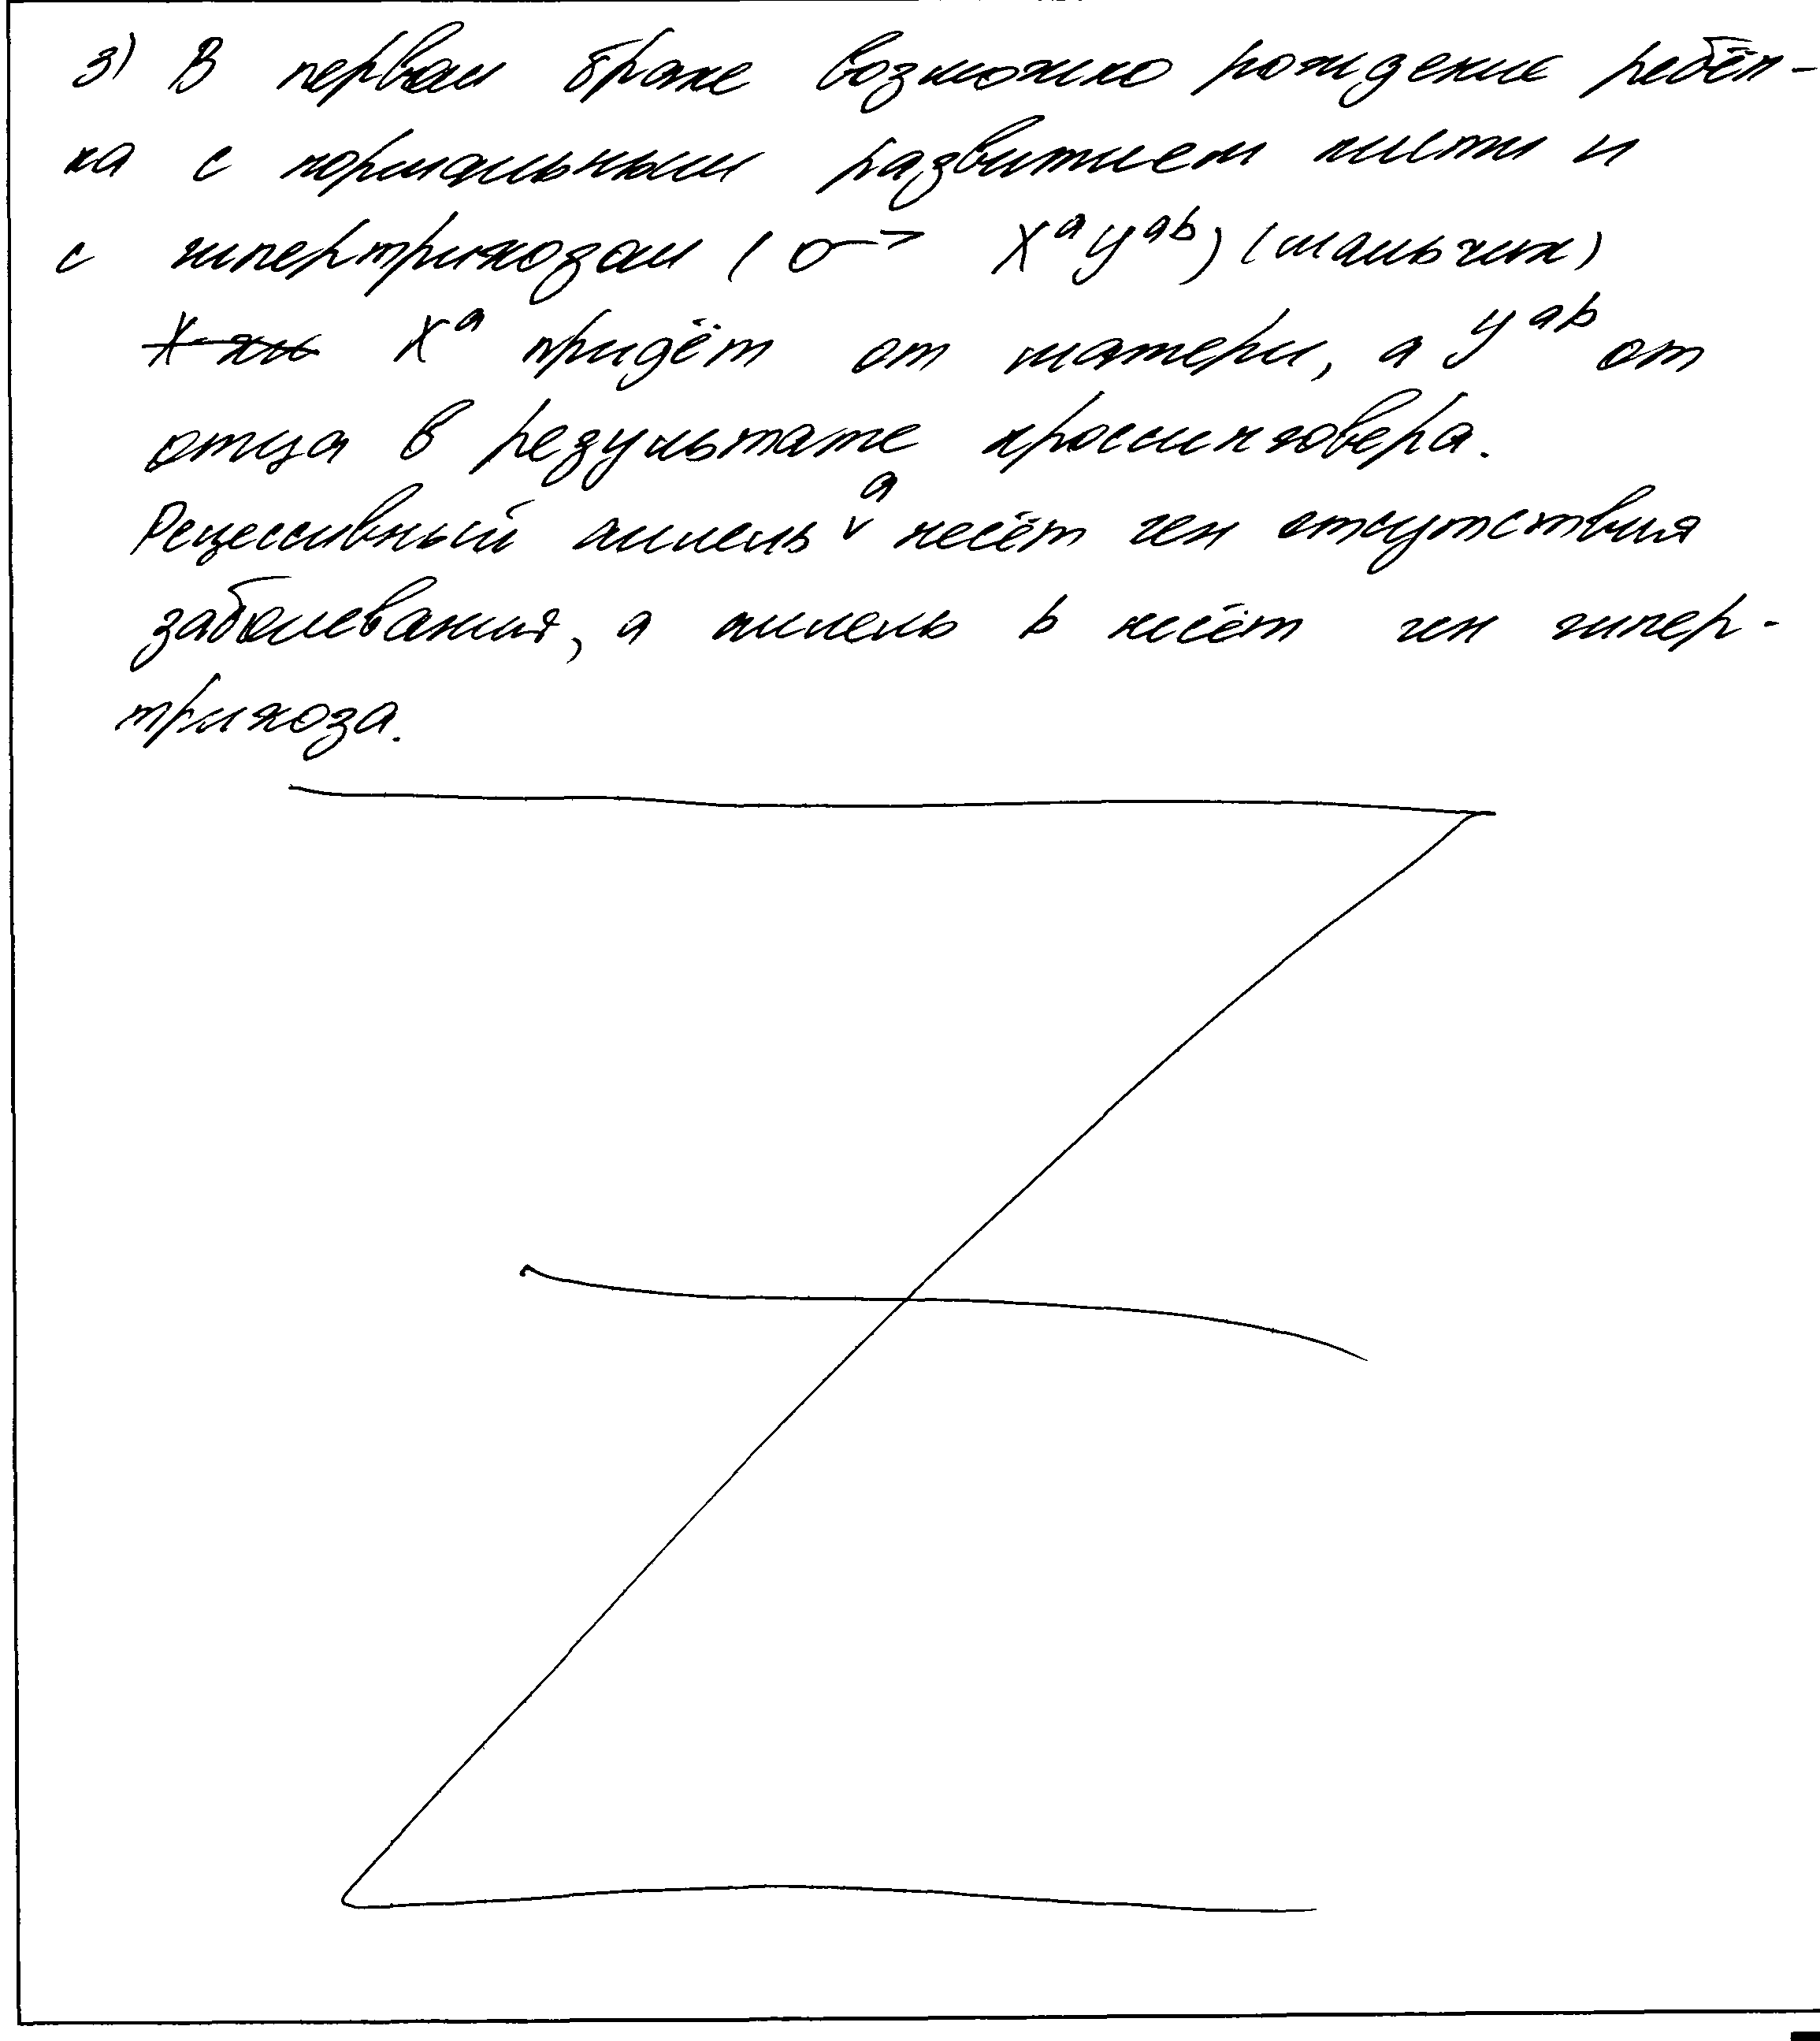 3) В первом браке возможно рождение ребён-
ка с нормальным развитием кисти и
с гипертрихозом (♂ XᵃYᵃᵇ) (мальчик)
Xᵃ придёт от матери, а Yᵃᵇ от
отца в результате кроссинговера.
Рецессивный аллель a несёт ген отсутствия
заболевания, а аллель b несёт ген гипер-
трихоза.